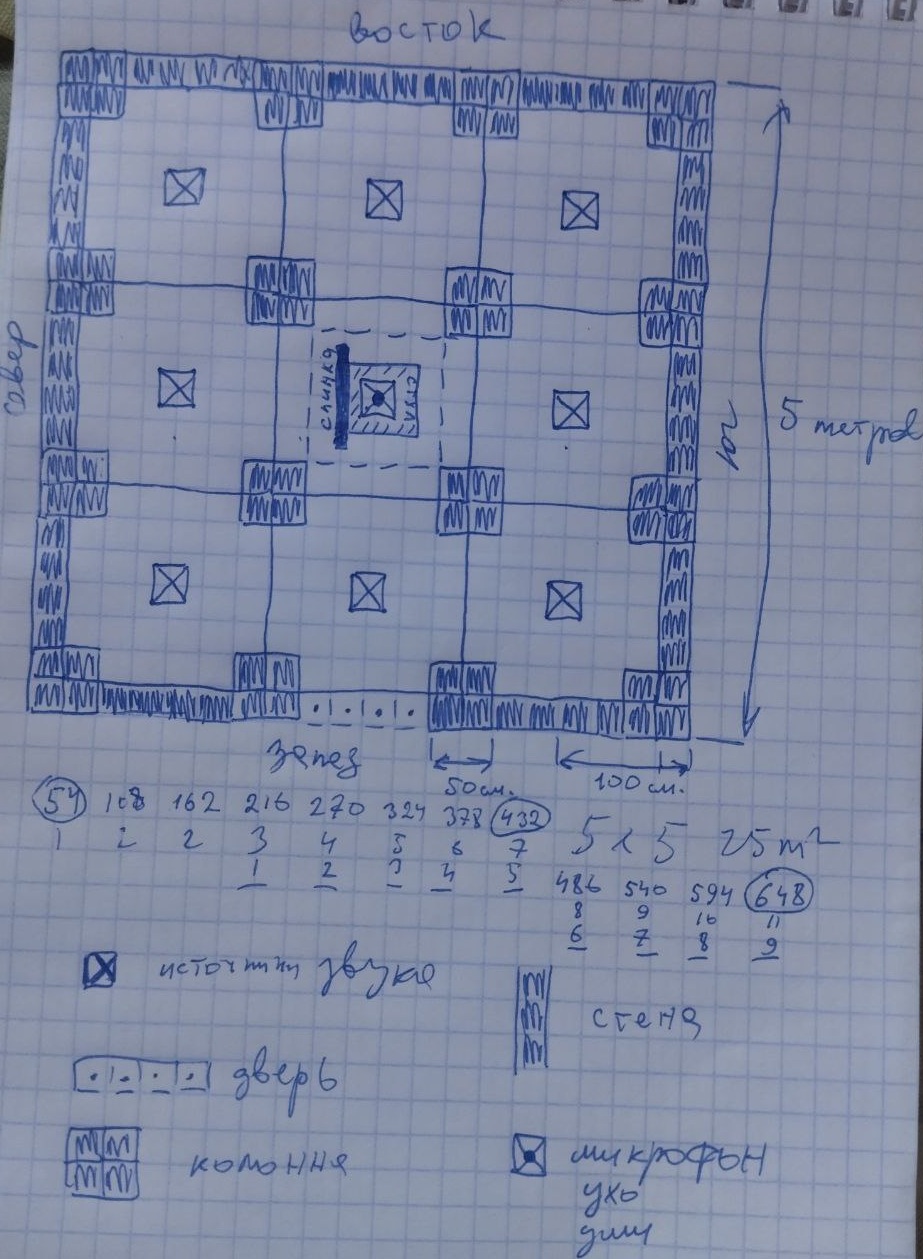 восток
север
спинка
стул
юг
5 метров
запад
50см.
100см.
54 108 162 216 270 324 378 432
1 2 2 3 4 5 6 7
1 2 3 4 5
5 x 5 25 м²
486 540 594 648
8 9 10 11
6 7 8 9
источники звука
стена
дверь
колонна
микрофон
ухо